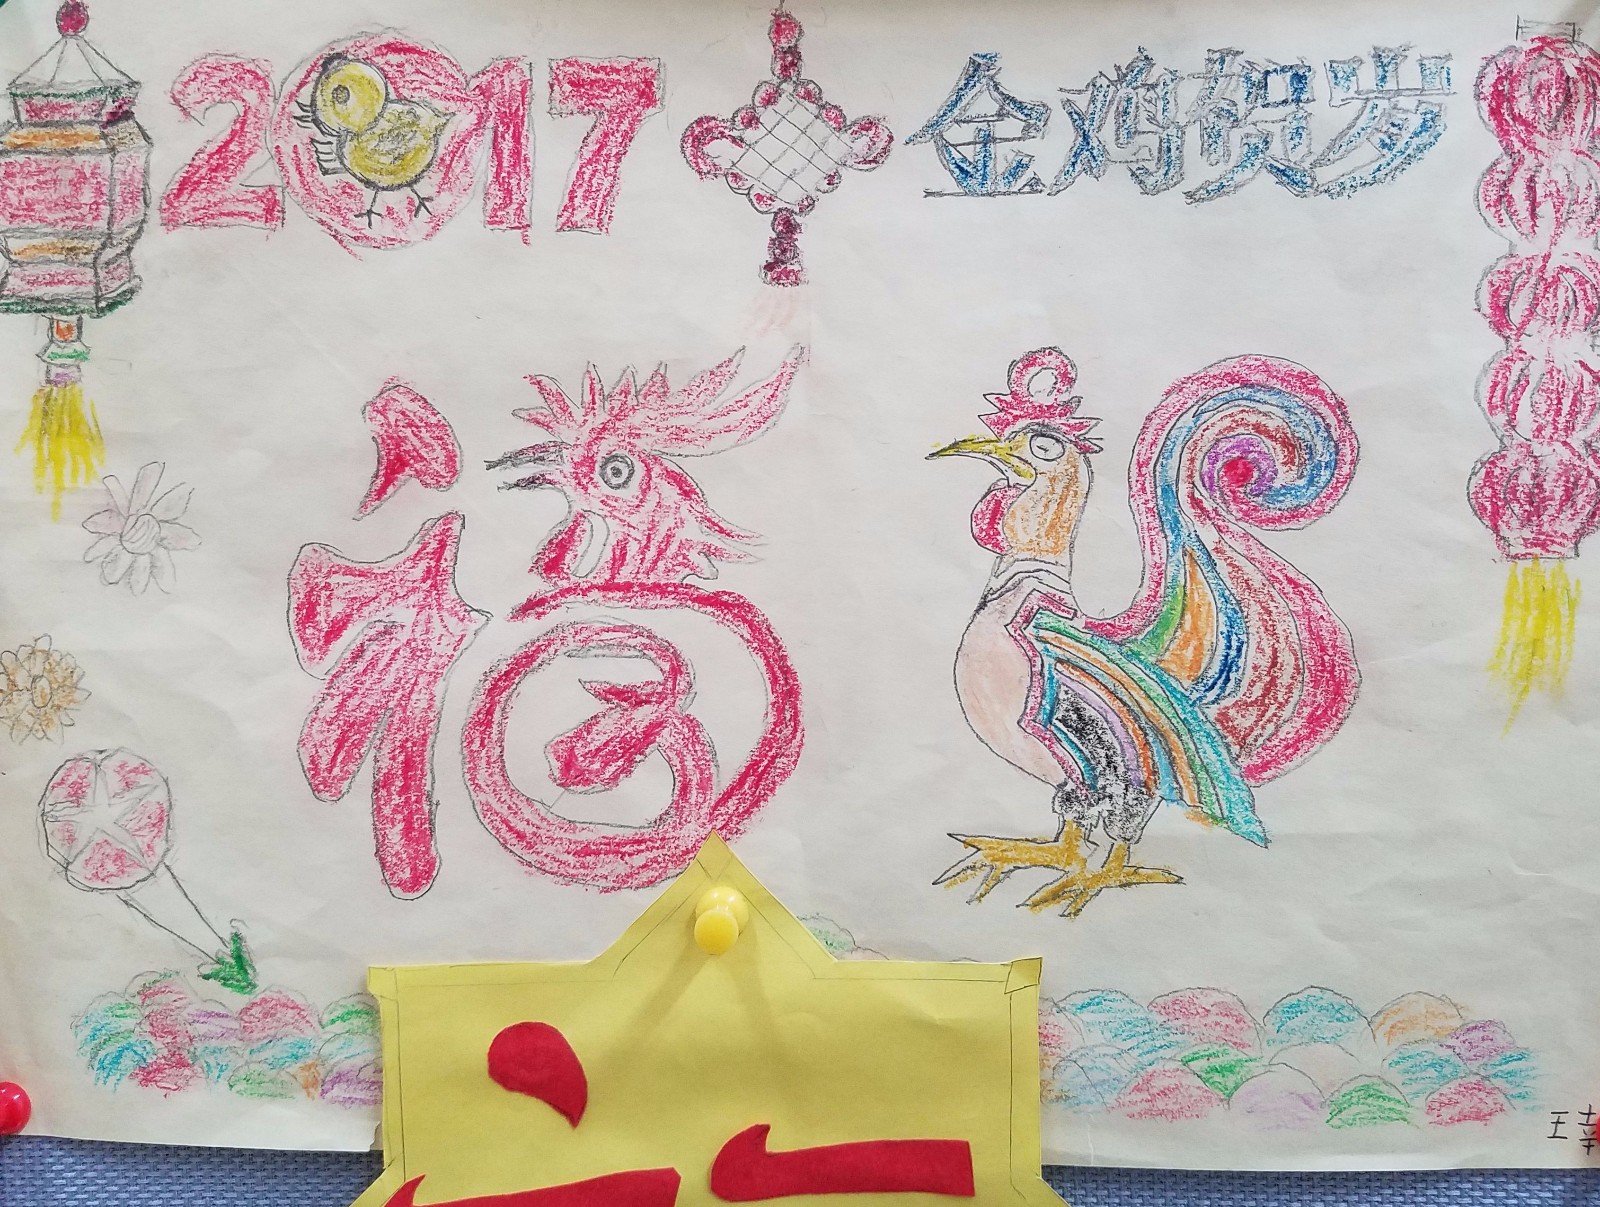 2017 金鸡贺岁
福
王幸